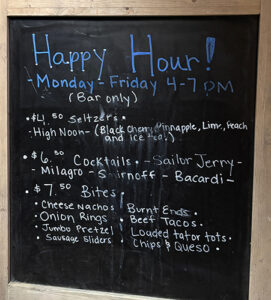 Happy Hour!
- Monday - Friday 4-7 PM
(Bar only)
• $4.50 Seltzers •
- High Noon - (Black Cherry, Pinnapple, Lime, Peach
and ice Tea.)
• $6.50 Cocktails • - Sailor Jerry -
- Milagro - Smirnoff - Bacardi -
• $7.50 Bites •
• Cheese Nachos
• Onion Rings
• Jumbo Pretzel
• Sausage Sliders
Burnt Ends •
• Beef Tacos •
Loaded tator tots •
Chips & Queso •